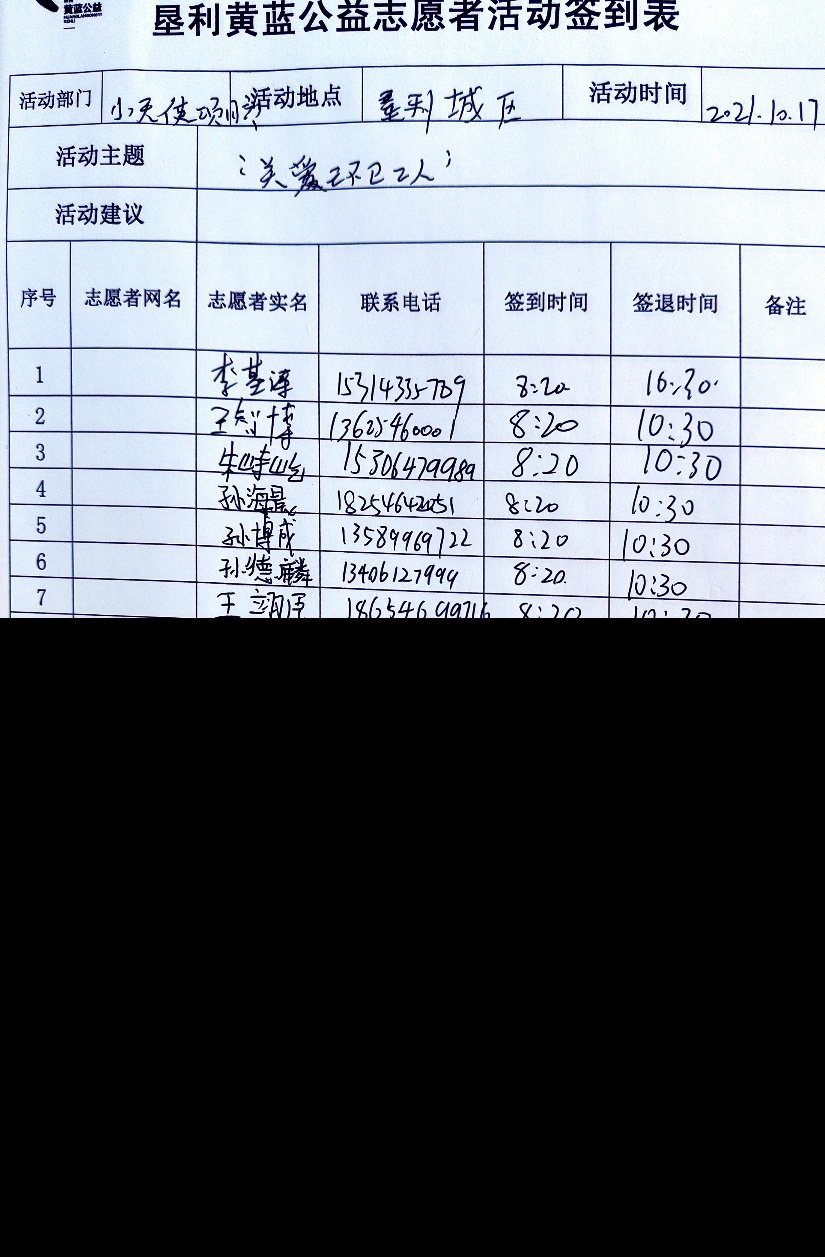 黄蓝公益
垦利黄蓝公益志愿者活动签到表
活动部门 小天使项目 活动地点 垦利城区 活动时间 2021.10.17
活动主题 “关爱环卫工人”
活动建议
序号 志愿者网名 志愿者实名 联系电话 签到时间 签退时间 备注
1 李基泽 15314335789 8:20
2 王智博 13625460001 8:20 10:30
3 朱峙屹 15306479989 8:20 10:30
4 孙海晨 18254642051 8:20 10:30
5 孙博成 13589969722 8:20 10:30
6 孙德麟 13406127999 8:20 10:30
7 王翊泽 8:20 10:30